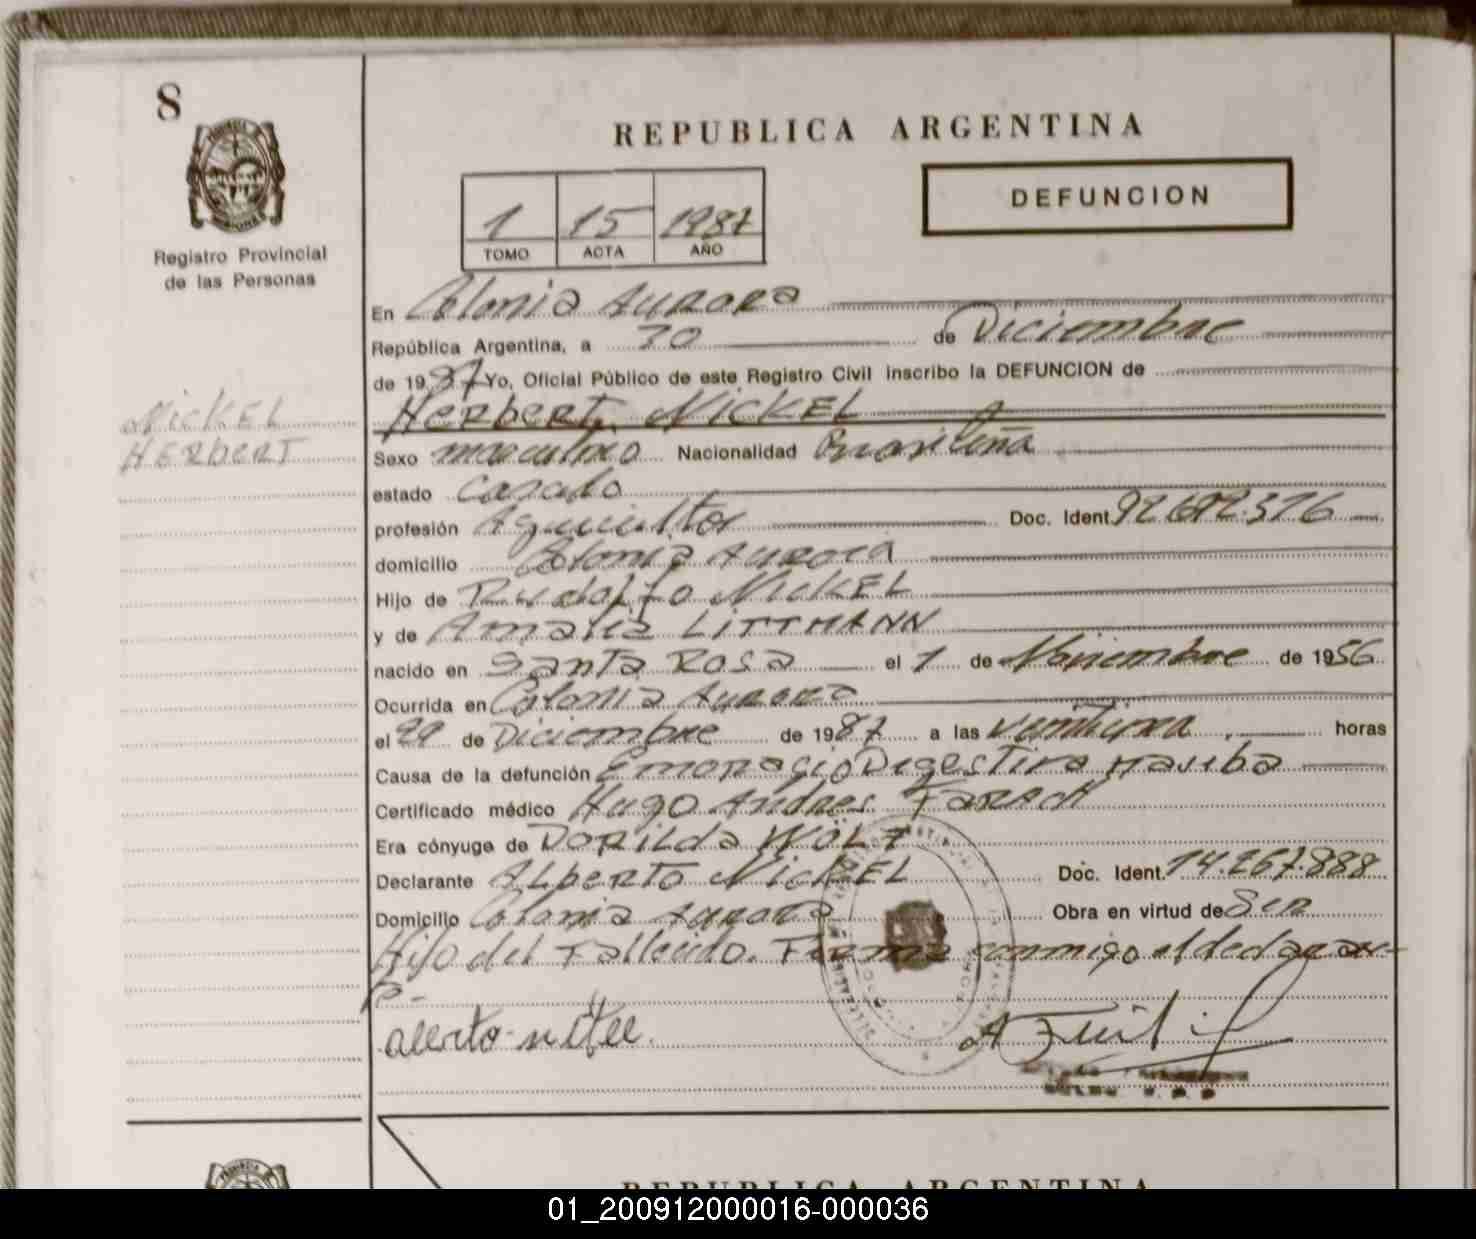 8
REPUBLICA ARGENTINA
DEFUNCION
1 15 1987
TOMO ACTA AÑO
Registro Provincial
de las Personas
En Colonia Aurora
República Argentina, a 30 de Diciembre
de 1987 Yo, Oficial Público de este Registro Civil inscribo la DEFUNCION de
NICKEL
HERBERT
HERBERT NICKEL
Sexo masculino Nacionalidad Brasileña
estado Casado
profesión Agricultor Doc. Ident. 92.692.376
domicilio Colonia Aurora
Hijo de Rudolfo NICKEL
y de Amalia LITTMANN
nacido en SANTA ROSA el 1 de Noviembre de 1956
Ocurrida en Colonia Aurora
el 29 de Diciembre de 1987 a las veintiuna horas
Causa de la defunción Emoragio Digestiva Masiba
Certificado médico Hugo Andres FARACH
Era cónyuge de DORILDA WOLF
Declarante ALBERTO NICKEL Doc. Ident. 14.267.888
Domicilio Colonia Aurora Obra en virtud de Ser
Hijo del Fallecido. Firma conmigo el declarante
alberto nikel
REPUBLICA ARGENTINA
01_200912000016-000036